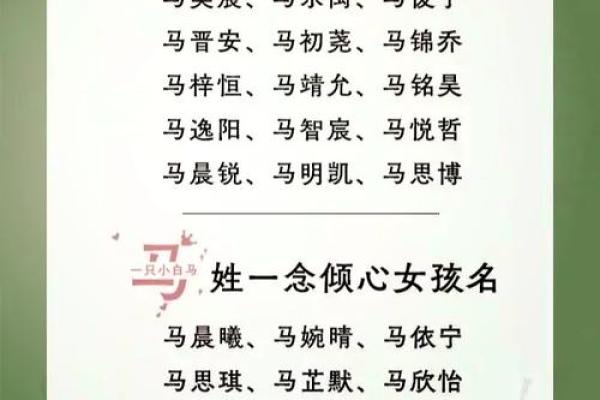 马晋安、马初荛、马锦乔
马梓恒、马靖允、马铭昊
马逸阳、马智宸、马悦哲
马晨锐、马明凯、马思博
马
一只小白马
姓一念倾心女孩名
马晨曦、马婉晴、马依宁
马思琪、马芷默、马欣怡